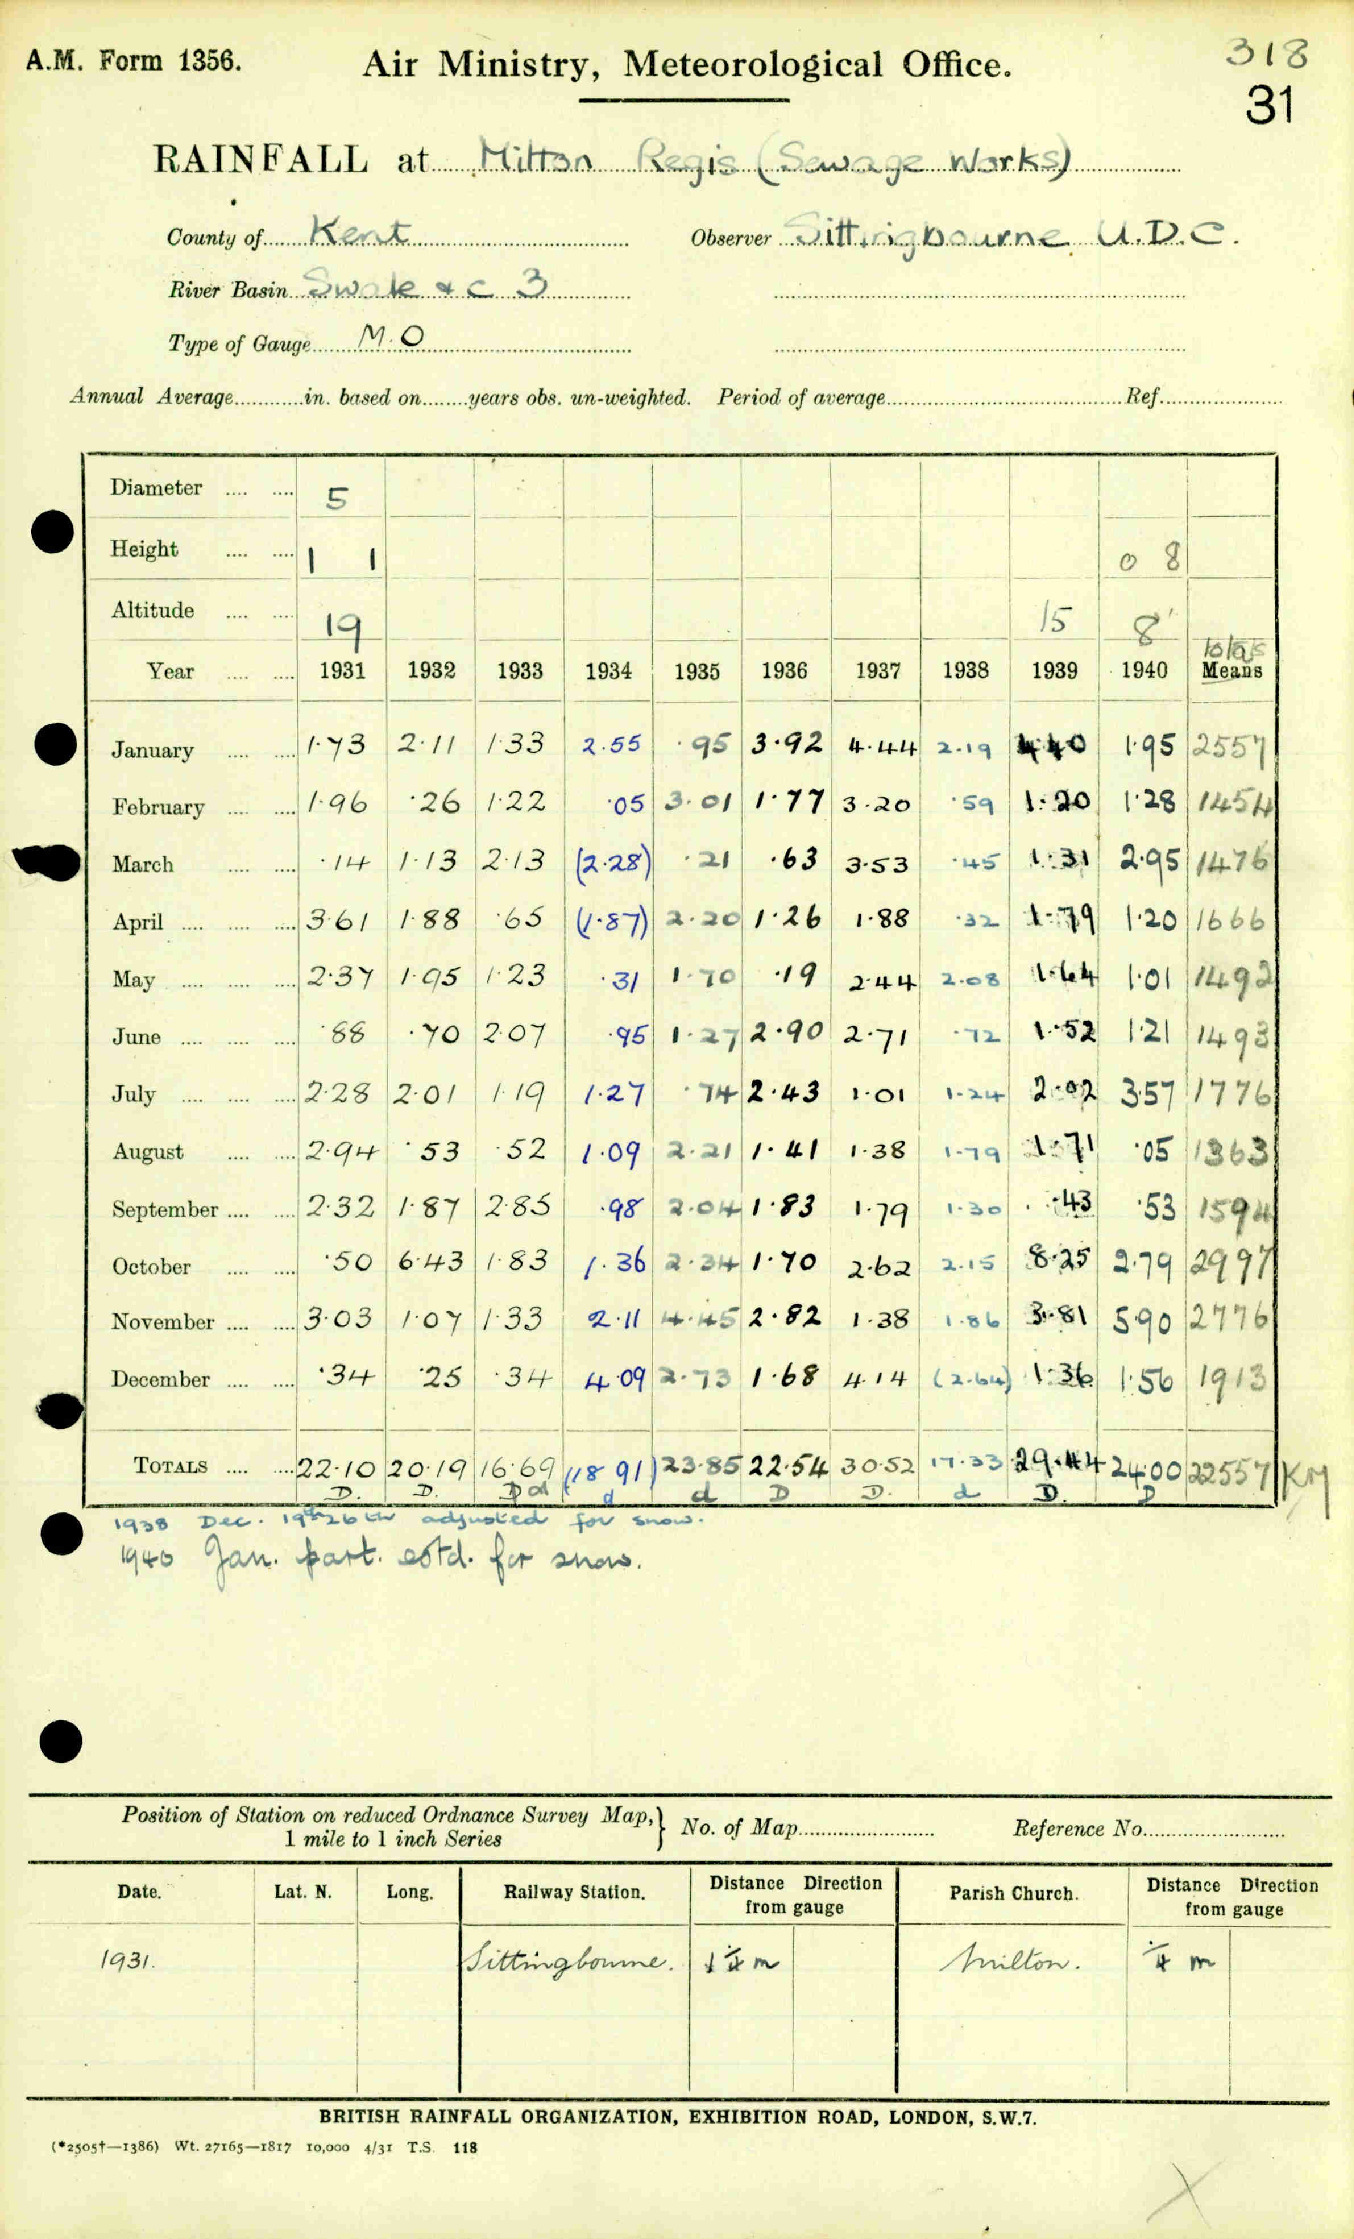 A.M. Form 1356.
Air Ministry, Meteorological Office.
318
31
RAINFALL at Milton Regis (Sewage Works)
County of Kent Observer Sittingbourne U.D.C.
River Basin Swale & c 3
Type of Gauge M.O
Annual Average in. based on years obs. un-weighted. Period of average Ref.
Diameter 5
Height 1 1 0 8
Altitude 19 15 8'
totals
Year 1931 1932 1933 1934 1935 1936 1937 1938 1939 1940 Means
January 1·73 2·11 1·33 2.55 ·95 3·92 4·44 2·19 4·40 1·95 2557
February 1·96 ·26 1·22 ·05 3·01 1·77 3·20 ·59 1·20 1·28 1454
March ·14 1·13 2·13 (2·28) ·21 ·63 3·53 ·45 1·31 2·95 1476
April 3·61 1·88 ·65 (1·87) 2·20 1·26 1·88 ·32 1·79 1·20 1666
May 2·37 1·95 1·23 ·31 1·70 ·19 2·44 2·08 1·64 1·01 1492
June ·88 ·70 2·07 ·95 1·27 2·90 2·71 ·72 1·52 1·21 1493
July 2·28 2·01 1·19 1·27 ·74 2·43 1·01 1·24 2·02 3·57 1776
August 2·94 ·53 ·52 1·09 2·21 1·41 1·38 1·79 1·71 ·05 1363
September 2·32 1·87 2·85 ·98 2·04 1·83 1·79 1·30 ·43 ·53 1594
October ·50 6·43 1·83 1·36 2·34 1·70 2·62 2·15 8·25 2·79 2997
November 3·03 1·07 1·33 2·11 4·45 2·82 1·38 1·86 3·81 5·90 2776
December ·34 ·25 ·34 4·09 2·73 1·68 4·14 (2·64) 1·36 1·56 1913
TOTALS 22·10 20·19 16·69 (18·91) 23·85 22·54 30·52 17·33 29·44 24·00 22557 KM
D. D. D d d d D D. d D. D
1938 Dec. 19th 26th adjusted for snow.
1940 Jan. part. estd. for snow.
Position of Station on reduced Ordnance Survey Map,} No. of Map Reference No.
1 mile to 1 inch Series
Date. Lat. N. Long. Railway Station. Distance Direction from gauge Parish Church. Distance Direction from gauge
1931. Sittingbourne. 1 1/4 m Milton. 1/4 m
BRITISH RAINFALL ORGANIZATION, EXHIBITION ROAD, LONDON, S.W.7.
(*2505†—1386) Wt. 27165—1817 10,000 4/31 T.S. 118